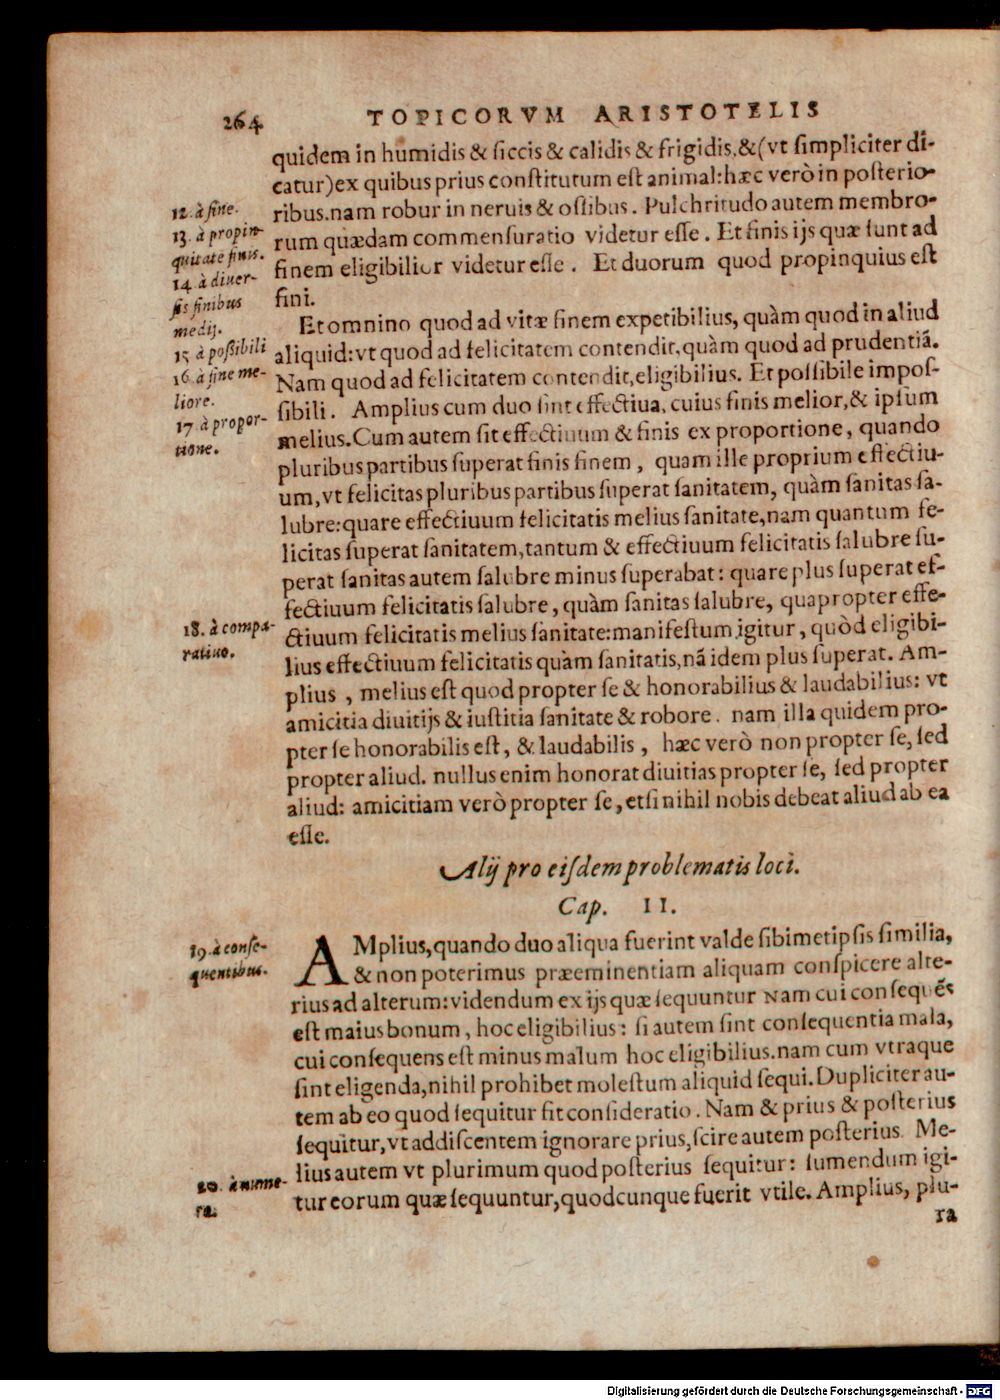 264 TOPICORVM ARISTOTELIS
quidem in humidis & ſiccis & calidis & frigidis,&(vt ſimpliciter di-
catur)ex quibus prius conſtitutum eſt animal:hæc verò in poſterio-
ribus.nam robur in neruis & oſſibus. Pulchritudo autem membro-
rum quædam commenſuratio videtur eſſe. Et finis ijs quæ ſunt ad
finem eligibilior videtur eſſe. Et duorum quod propinquius eſt
fini.
12. à fine.
13. à propin-
quitate finis.
14. à diuer-
ſis finibus
medij.
Et omnino quod ad vitæ finem expetibilius, quàm quod in aliud
aliquid:vt quod ad felicitatem contendit,quàm quod ad prudentiã.
Nam quod ad felicitatem contendit,eligibilius. Et poſſibile impoſ-
ſibili. Amplius cum duo ſint effectiua, cuius finis melior,& ipſum
melius.Cum autem ſit effectiuum & finis ex proportione, quando
pluribus partibus ſuperat finis finem, quam ille proprium effectiu-
um,vt felicitas pluribus partibus ſuperat ſanitatem, quàm ſanitas ſa-
lubre:quare effectiuum felicitatis melius ſanitate,nam quantum fe-
licitas ſuperat ſanitatem,tantum & effectiuum felicitatis ſalubre ſu-
perat ſanitas autem ſalubre minus ſuperabat: quare plus ſuperat ef-
fectiuum felicitatis ſalubre, quàm ſanitas ſalubre, quapropter effe-
ctiuum felicitatis melius ſanitate:manifeſtum igitur, quòd eligibi-
lius effectiuum felicitatis quàm ſanitatis,nã idem plus ſuperat. Am-
plius, melius eſt quod propter ſe & honorabilius & laudabilius: vt
amicitia diuitijs & iuſtitia ſanitate & robore. nam illa quidem pro-
pter ſe honorabilis eſt, & laudabilis, hæc verò non propter ſe, ſed
propter aliud. nullus enim honorat diuitias propter ſe, ſed propter
aliud: amicitiam verò propter ſe, etſi nihil nobis debeat aliud ab ea
eſſe.
15 à poßibili
16. à fine me-
liore.
17. à propor-
tione.
18. à compa-
ratiuo.
Alij pro eiſdem problematis loci.
Cap. II.
AMplius,quando duo aliqua fuerint valde ſibimetipſis ſimilia,
& non poterimus præeminentiam aliquam conſpicere alte-
rius ad alterum:videndum ex ijs quæ ſequuntur Nam cui conſequẽs
eſt maius bonum, hoc eligibilius: ſi autem ſint conſequentia mala,
cui conſequens eſt minus malum hoc eligibilius.nam cum vtraque
ſint eligenda,nihil prohibet moleſtum aliquid ſequi.Dupliciter au-
tem ab eo quod ſequitur fit conſideratio. Nam & prius & poſterius
ſequitur,vt addiſcentem ignorare prius,ſcire autem poſterius. Me-
lius autem vt plurimum quod poſterius ſequitur: ſumendum igi-
tur eorum quæ ſequuntur,quodcunque fuerit vtile. Amplius, plu-
ra
19. à conſe-
quentibus.
20. à nume-
ra.
Digitalisierung gefördert durch die Deutsche Forschungsgemeinschaft - DFG